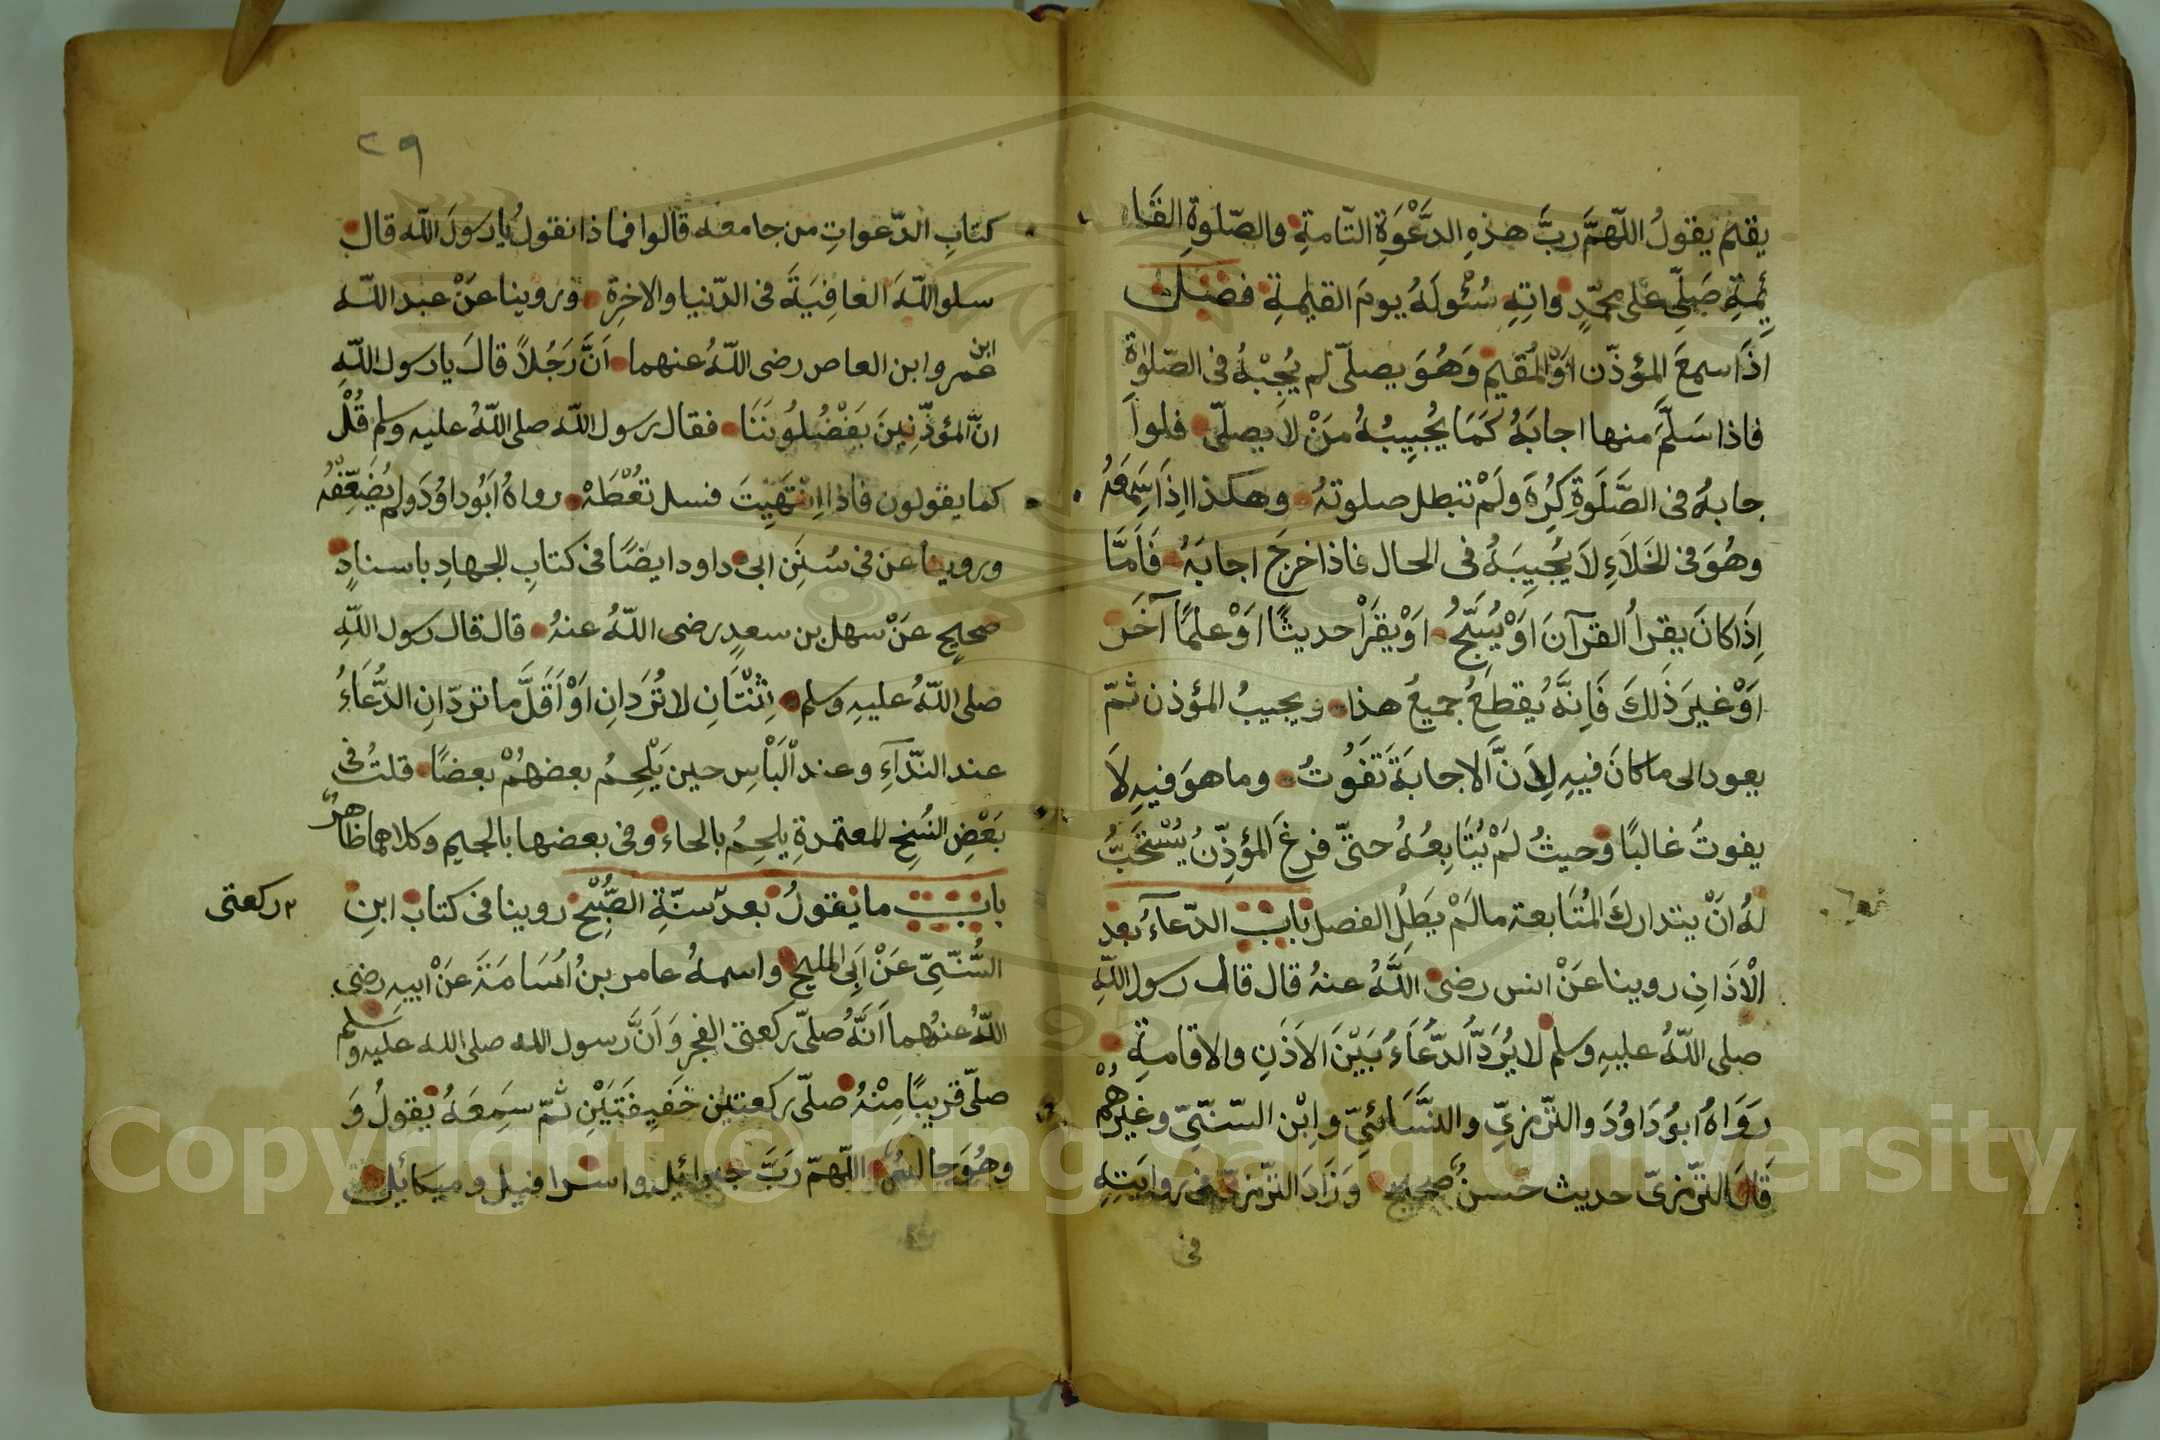 يقيم يقولُ اللّهمَّ ربَّ هذهِ الدَّعْوَةِ التّامةِ والصّلوةِ القَا
ئِمةِ صَلِّي على محمّدٍ واتِهِ سُئْولَهُ يومَ القيٰمةِ فصل
اِذَا سمعَ المؤذّن اوْ المُقيم وَهُوَ يصلّى لم يُجِبْهُ فى الصّلوٰةِ
فاذا سَلَّمَ منها اجابَهُ كَمَا يُجِيبُهُ مَنْ لاَ يصلّى فلو اَ
جابهُ فى الصَّلَوةِ كُرِهَ ولَمْ تبطل صلوتهُ وهكذا اِذَا سَمِعَهُ
وهُوَ فى الخَلاَءِ لاَ يُجِيبَهُ فى الحال فاذا خرجَ اجابَهُ فَاَمَّا
اِذَا كانَ يقرأُ القرآنَ اَوْ يُسَبِّحُ اوْ يقرَأْ حديثًا اَوْ علمًا آخَرَ
اَوْ غيرَ ذَلِكَ فَاِنَّهَ يُقطعُ جميعُ هذا ويجيبُ المؤذن ثمّ
يعود الى ما كانَ فيهِ لِاَنَّ الاجابَةَ تَفَوُتُ وما هوَ فيهِ لاَ
يفوتُ غالبًا وحيثُ لَمْ يُتَابِعُهُ حتىّ فرغَ المؤذّنُ يُسْتَحَبُّ
لهُ انْ يتداركَ المُتَابعة ما لَمْ يَطِلِ الفصل باب الدّعآءُ بعد
الْاَذَانِ روينا عَنْ انس رضى اللَّهُ عنهُ قال قال رسول اللّهِ
صلى اللّهُ عليهِ وسلم لا يُرَدُّ الدُّعَاءُ بَيْنَ الاَذَنِ والاقامةِ
رَوَاهُ اَبُو دَاوُدَ والتّرمزىّ والنَّسَائىّ وابْن السّنّىّ وغيرُهُمْ
قَالَ التّرمزىّ حديث حسنٌ صحيح وَزَادَ التّرمزىّ فى روايتِهِ
فى
٢٩
كتابِ الدّعواتِ من جامعه قالوا فما ذا نقولُ يا رسولَ اللّه قال
سلو اللّهَ العَافِيَةَ فى الدّنيا والاخِرةِ وروينا عَنْ عبد اللّه
ابن
عمرو ابن العاص رضى اللّهُ عنهما اَنَّ رَجُلاً قالَ يا رسول اللّهِ
انَّ المؤذّنِينَ يَفْضُلُونَنَا فقال رسول اللّه صلى اللّهُ عليهِ وسلم قُلْ
كما يقولون فاذا اِنْتَهَيْتَ فسل تعُْطَهْ رواهُ اَبُو داوُدَ ولم يُضَعِّفْهُ
وروينا عن فى سُنَنِ ابى داود ايضًا فى كتابِ الجهادِ باسنادٍ
صحيحٍ عَنْ سهل بن سعدٍ رضى اللّهُ عنهُ قال قال رسول اللّهِ
صلى اللّهُ عليهِ وسلم ثِنْتَانِ لا تُرَدَانِ اَوْ اَقَلَّ ما تردّانِ الدُّعَاءُ
عند النّدَآءِ وعند الْبَأْسِ حين يَلْحِمُ بعضهُمْ بعضًا قلتُ فى
بَعْضِ النُسَخِ المعتمدةِ يلحِمُ بالحاء وفى بعضها بالجيم وكلاهما ظاهرٌ
باب ما يقولُ بعد سنّةِ الصُّبْحْ روينا فى كتاب ابنِ
ركعتى
السُّنّىّ عَنْ اَبِى المليح واسمهُ عامر بنُ اُسَامَةَ عَنْ ابيهِ رضى
اللّهُ عنهُما اَنَّهُ صلىّ ركعتى الفجر وَاَنَّ رسول الله صلى الله عليه وسلم
صلّى قريبًا مِنْهُ صلّى ركعتين خَفِيفَتَيْنِ ثمّ سَمِعَهُ يقولُ وَ
وهُوَ جالسٌ اللّهمّ رَبَّ جبرائيل واسرافيل وميكائيل